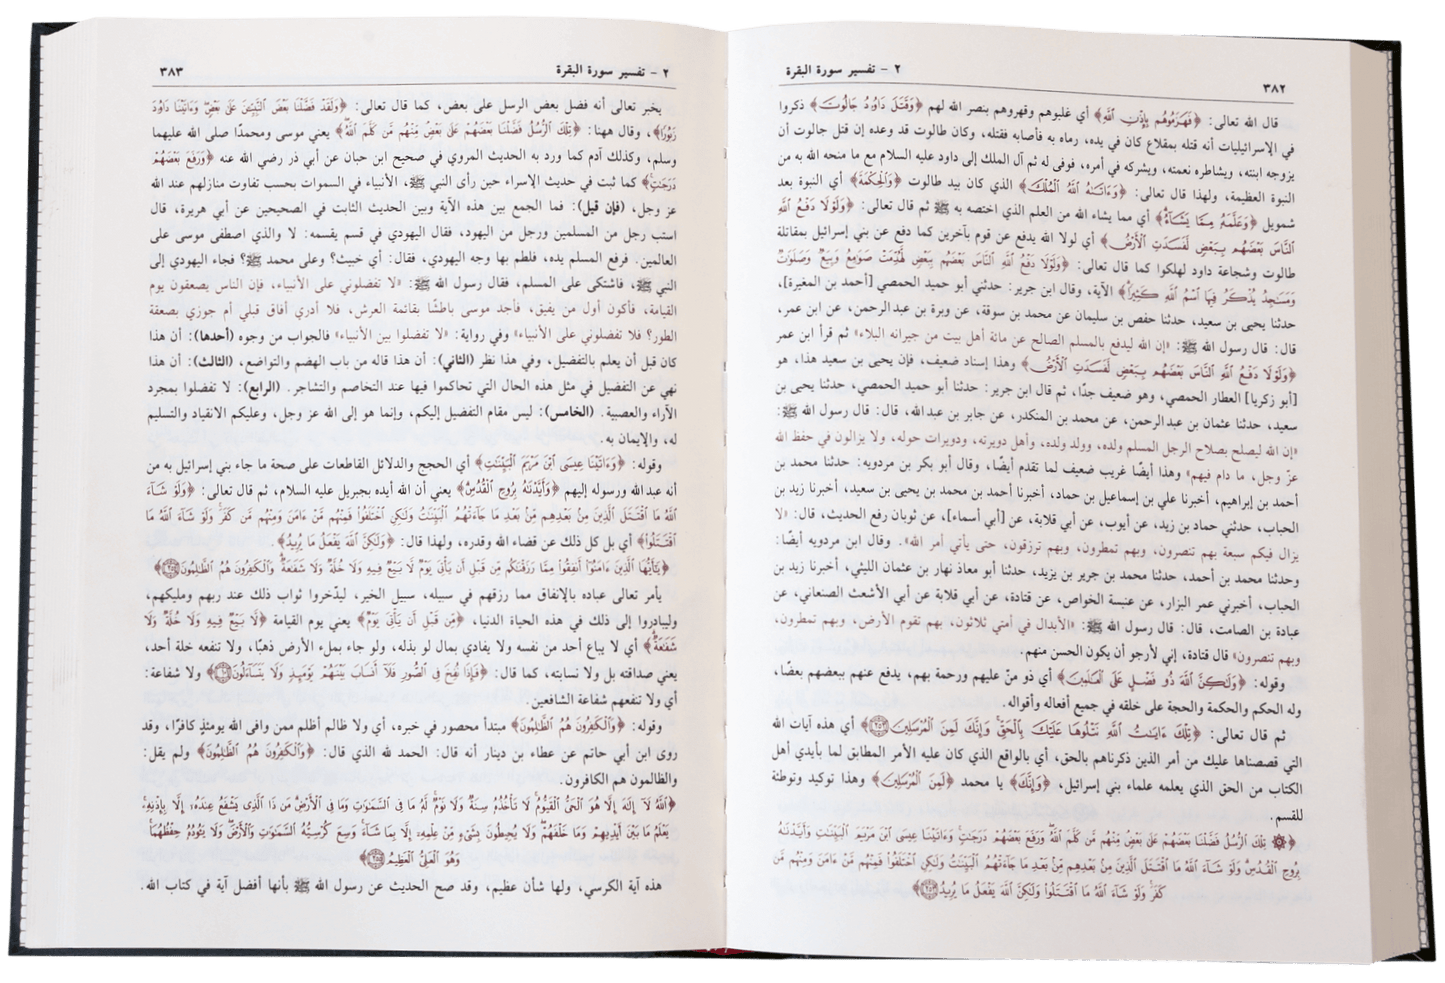 ٢ - تفسير سورة البقرة
٣٨٢
قال الله تعالى: ﴿فَهَزَمُوهُم بِإِذْنِ ٱللَّهِ﴾ أي غلبوهم وقهروهم بنصر الله لهم ﴿وَقَتَلَ دَاوُۥدُ جَالُوتَ﴾ ذكروا
في الإسرائيليات أنه قتله بمقلاع كان في يده، رماه به فأصابه فقتله، وكان طالوت قد وعده إن قتل جالوت أن
يزوجه ابنته، ويشاطره نعمته، ويشركه في أمره، فوفى له ثم آل الملك إلى داود عليه السلام مع ما منحه الله به من
النبوة العظيمة، ولهذا قال تعالى: ﴿وَءَاتَىٰهُ ٱللَّهُ ٱلْمُلْكَ﴾ الذي كان بيد طالوت ﴿وَٱلْحِكْمَةَ﴾ أي النبوة بعد
شمويل ﴿وَعَلَّمَهُۥ مِمَّا يَشَآءُ﴾ أي مما يشاء الله من العلم الذي اختصه به ﷺ ثم قال تعالى: ﴿وَلَوْلَا دَفْعُ ٱللَّهِ
ٱلنَّاسَ بَعْضَهُم بِبَعْضٍ لَّفَسَدَتِ ٱلْأَرْضُ﴾ أي لولا الله يدفع عن قوم بآخرين كما دفع عن بني إسرائيل بمقاتلة
طالوت وشجاعة داود لهلكوا كما قال تعالى: ﴿وَلَوْلَا دَفْعُ ٱللَّهِ ٱلنَّاسَ بَعْضَهُم بِبَعْضٍ لَّهُدِّمَتْ صَوَٰمِعُ وَبِيَعٌ وَصَلَوَٰتٌ
وَمَسَٰجِدُ يُذْكَرُ فِيهَا ٱسْمُ ٱللَّهِ كَثِيرًا﴾ الآية، وقال ابن جرير: حدثني أبو حميد الحمصي [أحمد بن المغيرة]،
حدثنا يحيى بن سعيد، حدثنا حفص بن سليمان عن محمد بن سوقة، عن وبرة بن عبد الرحمن، عن ابن عمر،
قال: قال رسول الله ﷺ: «إن الله ليدفع بالمسلم الصالح عن مائة أهل بيت من جيرانه البلاء» ثم قرأ ابن عمر
﴿وَلَوْلَا دَفْعُ ٱللَّهِ ٱلنَّاسَ بَعْضَهُم بِبَعْضٍ لَّفَسَدَتِ ٱلْأَرْضُ﴾ وهذا إسناد ضعيف، فإن يحيى بن سعيد هذا، هو
[أبو زكريا] العطار الحمصي، وهو ضعيف جدًا، ثم قال ابن جرير: حدثنا أبو حميد الحمصي، حدثنا يحيى بن
سعيد، حدثنا عثمان بن عبد الرحمن، عن محمد بن المنكدر، عن جابر بن عبد الله، قال: قال رسول الله ﷺ:
«إن الله ليصلح بصلاح الرجل المسلم ولده، وولد ولده، وأهل دويرته، ودويرات حوله، ولا يزالون في حفظ الله
عزّ وجل، ما دام فيهم» وهذا أيضًا غريب ضعيف لما تقدم أيضًا، وقال أبو بكر بن مردويه: حدثنا محمد بن
أحمد بن إبراهيم، أخبرنا علي بن إسماعيل بن حماد، أخبرنا أحمد بن محمد بن يحيى بن سعيد، أخبرنا زيد بن
الحباب، حدثني حماد بن زيد، عن أيوب، عن أبي قلابة، عن [أبي أسماء]، عن ثوبان رفع الحديث، قال: «لا
يزال فيكم سبعة بهم تنصرون، وبهم تمطرون، وبهم ترزقون، حتى يأتي أمر الله». وقال ابن مردويه أيضًا:
وحدثنا محمد بن أحمد، حدثنا محمد بن جرير بن يزيد، حدثنا أبو معاذ نهار بن عثمان الليثي، أخبرنا زيد بن
الحباب، أخبرني عمر البزار، عن عنبسة الخواص، عن قتادة، عن أبي قلابة عن أبي الأشعث الصنعاني، عن
عبادة بن الصامت، قال: قال رسول الله ﷺ: «الأبدال في أمتي ثلاثون، بهم تقوم الأرض، وبهم تمطرون،
وبهم تنصرون» قال قتادة، إني لأرجو أن يكون الحسن منهم.
وقوله: ﴿وَلَٰكِنَّ ٱللَّهَ ذُو فَضْلٍ عَلَى ٱلْعَٰلَمِينَ﴾ أي ذو منّ عليهم ورحمة بهم، يدفع عنهم ببعضهم بعضًا،
وله الحكم والحكمة والحجة على خلقه في جميع أفعاله وأقواله.
ثم قال تعالى: ﴿تِلْكَ ءَايَٰتُ ٱللَّهِ نَتْلُوهَا عَلَيْكَ بِٱلْحَقِّ وَإِنَّكَ لَمِنَ ٱلْمُرْسَلِينَ ٢٥٢﴾ أي هذه آيات الله
التي قصصناها عليك من أمر الذين ذكرناهم بالحق، أي بالواقع الذي كان عليه الأمر المطابق لما بأيدي أهل
الكتاب من الحق الذي يعلمه علماء بني إسرائيل، ﴿وَإِنَّكَ﴾ يا محمد ﴿لَمِنَ ٱلْمُرْسَلِينَ﴾ وهذا توكيد وتوطئة
للقسم.
﴿۞ تِلْكَ ٱلرُّسُلُ فَضَّلْنَا بَعْضَهُمْ عَلَىٰ بَعْضٍ مِّنْهُم مَّن كَلَّمَ ٱللَّهُ وَرَفَعَ بَعْضَهُمْ دَرَجَٰتٍ وَءَاتَيْنَا عِيسَى ٱبْنَ مَرْيَمَ ٱلْبَيِّنَٰتِ وَأَيَّدْنَٰهُ
بِرُوحِ ٱلْقُدُسِ وَلَوْ شَآءَ ٱللَّهُ مَا ٱقْتَتَلَ ٱلَّذِينَ مِنۢ بَعْدِهِم مِّنۢ بَعْدِ مَا جَآءَتْهُمُ ٱلْبَيِّنَٰتُ وَلَٰكِنِ ٱخْتَلَفُوا۟ فَمِنْهُم مَّنْ ءَامَنَ وَمِنْهُم مَّن
كَفَرَ وَلَوْ شَآءَ ٱللَّهُ مَا ٱقْتَتَلُوا۟ وَلَٰكِنَّ ٱللَّهَ يَفْعَلُ مَا يُرِيدُ ٢٥٣﴾
٢ - تفسير سورة البقرة
٣٨٣
يخبر تعالى أنه فضل بعض الرسل على بعض، كما قال تعالى: ﴿وَلَقَدْ فَضَّلْنَا بَعْضَ ٱلنَّبِيِّـۧنَ عَلَىٰ بَعْضٍ وَءَاتَيْنَا دَاوُۥدَ
زَبُورًا﴾، وقال ههنا: ﴿تِلْكَ ٱلرُّسُلُ فَضَّلْنَا بَعْضَهُمْ عَلَىٰ بَعْضٍ مِّنْهُم مَّن كَلَّمَ ٱللَّهُ﴾ يعني موسى ومحمدًا صلى الله عليهما
وسلم، وكذلك آدم كما ورد به الحديث المروي في صحيح ابن حبان عن أبي ذر رضي الله عنه ﴿وَرَفَعَ بَعْضَهُمْ
دَرَجَٰتٍ﴾ كما ثبت في حديث الإسراء حين رأى النبي ﷺ، الأنبياء في السموات بحسب تفاوت منازلهم عند الله
عز وجل، (فإن قيل): فما الجمع بين هذه الآية وبين الحديث الثابت في الصحيحين عن أبي هريرة، قال
استب رجل من المسلمين ورجل من اليهود، فقال اليهودي في قسم يقسمه: لا والذي اصطفى موسى على
العالمين. فرفع المسلم يده، فلطم بها وجه اليهودي، فقال: أي خبيث؟ وعلى محمد ﷺ؟ فجاء اليهودي إلى
النبي ﷺ، فاشتكى على المسلم، فقال رسول الله ﷺ: «لا تفضلوني على الأنبياء، فإن الناس يصعقون يوم
القيامة، فأكون أول من يفيق، فأجد موسى باطشًا بقائمة العرش، فلا أدري أفاق قبلي أم جوزي بصعقة
الطور؟ فلا تفضلوني على الأنبياء» وفي رواية: «لا تفضلوا بين الأنبياء» فالجواب من وجوه (أحدها): أن هذا
كان قبل أن يعلم بالتفضيل، وفي هذا نظر (الثاني): أن هذا قاله من باب الهضم والتواضع، (الثالث): أن هذا
نهي عن التفضيل في مثل هذه الحال التي تحاكموا فيها عند التخاصم والتشاجر. (الرابع): لا تفضلوا بمجرد
الآراء والعصبية. (الخامس): ليس مقام التفضيل إليكم، وإنما هو إلى الله عز وجل، وعليكم الانقياد والتسليم
له، والإيمان به.
وقوله: ﴿وَءَاتَيْنَا عِيسَى ٱبْنَ مَرْيَمَ ٱلْبَيِّنَٰتِ﴾ أي الحجج والدلائل القاطعات على صحة ما جاء بني إسرائيل به من
أنه عبد الله ورسوله إليهم ﴿وَأَيَّدْنَٰهُ بِرُوحِ ٱلْقُدُسِ﴾ يعني أن الله أيده بجبريل عليه السلام، ثم قال تعالى: ﴿وَلَوْ شَآءَ
ٱللَّهُ مَا ٱقْتَتَلَ ٱلَّذِينَ مِنۢ بَعْدِهِم مِّنۢ بَعْدِ مَا جَآءَتْهُمُ ٱلْبَيِّنَٰتُ وَلَٰكِنِ ٱخْتَلَفُوا۟ فَمِنْهُم مَّنْ ءَامَنَ وَمِنْهُم مَّن كَفَرَ وَلَوْ شَآءَ ٱللَّهُ مَا
ٱقْتَتَلُوا۟﴾ أي بل كل ذلك عن قضاء الله وقدره، ولهذا قال: ﴿وَلَٰكِنَّ ٱللَّهَ يَفْعَلُ مَا يُرِيدُ﴾.
﴿يَٰٓأَيُّهَا ٱلَّذِينَ ءَامَنُوٓا۟ أَنفِقُوا۟ مِمَّا رَزَقْنَٰكُم مِّن قَبْلِ أَن يَأْتِىَ يَوْمٌ لَّا بَيْعٌ فِيهِ وَلَا خُلَّةٌ وَلَا شَفَٰعَةٌ وَٱلْكَٰفِرُونَ هُمُ ٱلظَّٰلِمُونَ ٢٥٤﴾
يأمر تعالى عباده بالإنفاق مما رزقهم في سبيله، سبيل الخير، ليدّخروا ثواب ذلك عند ربهم ومليكهم،
وليبادروا إلى ذلك في هذه الحياة الدنيا، ﴿مِّن قَبْلِ أَن يَأْتِىَ يَوْمٌ﴾ يعني يوم القيامة ﴿لَّا بَيْعٌ فِيهِ وَلَا خُلَّةٌ وَلَا
شَفَٰعَةٌ﴾ أي لا يباع أحد من نفسه ولا يفادي بمال لو بذله، ولو جاء بملء الأرض ذهبًا، ولا تنفعه خلة أحد،
يعني صداقته بل ولا نسابته، كما قال: ﴿فَإِذَا نُفِخَ فِى ٱلصُّورِ فَلَآ أَنسَابَ بَيْنَهُمْ يَوْمَئِذٍ وَلَا يَتَسَآءَلُونَ ١٠١﴾ ولا شفاعة:
أي ولا تنفعهم شفاعة الشافعين.
وقوله: ﴿وَٱلْكَٰفِرُونَ هُمُ ٱلظَّٰلِمُونَ﴾ مبتدأ محصور في خبره، أي ولا ظالم أظلم ممن وافى الله يومئذٍ كافرًا، وقد
روى ابن أبي حاتم عن عطاء بن دينار أنه قال: الحمد لله الذي قال: ﴿وَٱلْكَٰفِرُونَ هُمُ ٱلظَّٰلِمُونَ﴾ ولم يقل:
والظالمون هم الكافرون.
﴿ٱللَّهُ لَآ إِلَٰهَ إِلَّا هُوَ ٱلْحَىُّ ٱلْقَيُّومُ لَا تَأْخُذُهُۥ سِنَةٌ وَلَا نَوْمٌ لَّهُۥ مَا فِى ٱلسَّمَٰوَٰتِ وَمَا فِى ٱلْأَرْضِ مَن ذَا ٱلَّذِى يَشْفَعُ عِندَهُۥٓ إِلَّا بِإِذْنِهِۦ
يَعْلَمُ مَا بَيْنَ أَيْدِيهِمْ وَمَا خَلْفَهُمْ وَلَا يُحِيطُونَ بِشَىْءٍ مِّنْ عِلْمِهِۦٓ إِلَّا بِمَا شَآءَ وَسِعَ كُرْسِيُّهُ ٱلسَّمَٰوَٰتِ وَٱلْأَرْضَ وَلَا يَـُٔودُهُۥ حِفْظُهُمَا
وَهُوَ ٱلْعَلِىُّ ٱلْعَظِيمُ ٢٥٥﴾
هذه آية الكرسي، ولها شأن عظيم، وقد صح الحديث عن رسول الله ﷺ بأنها أفضل آية في كتاب الله.